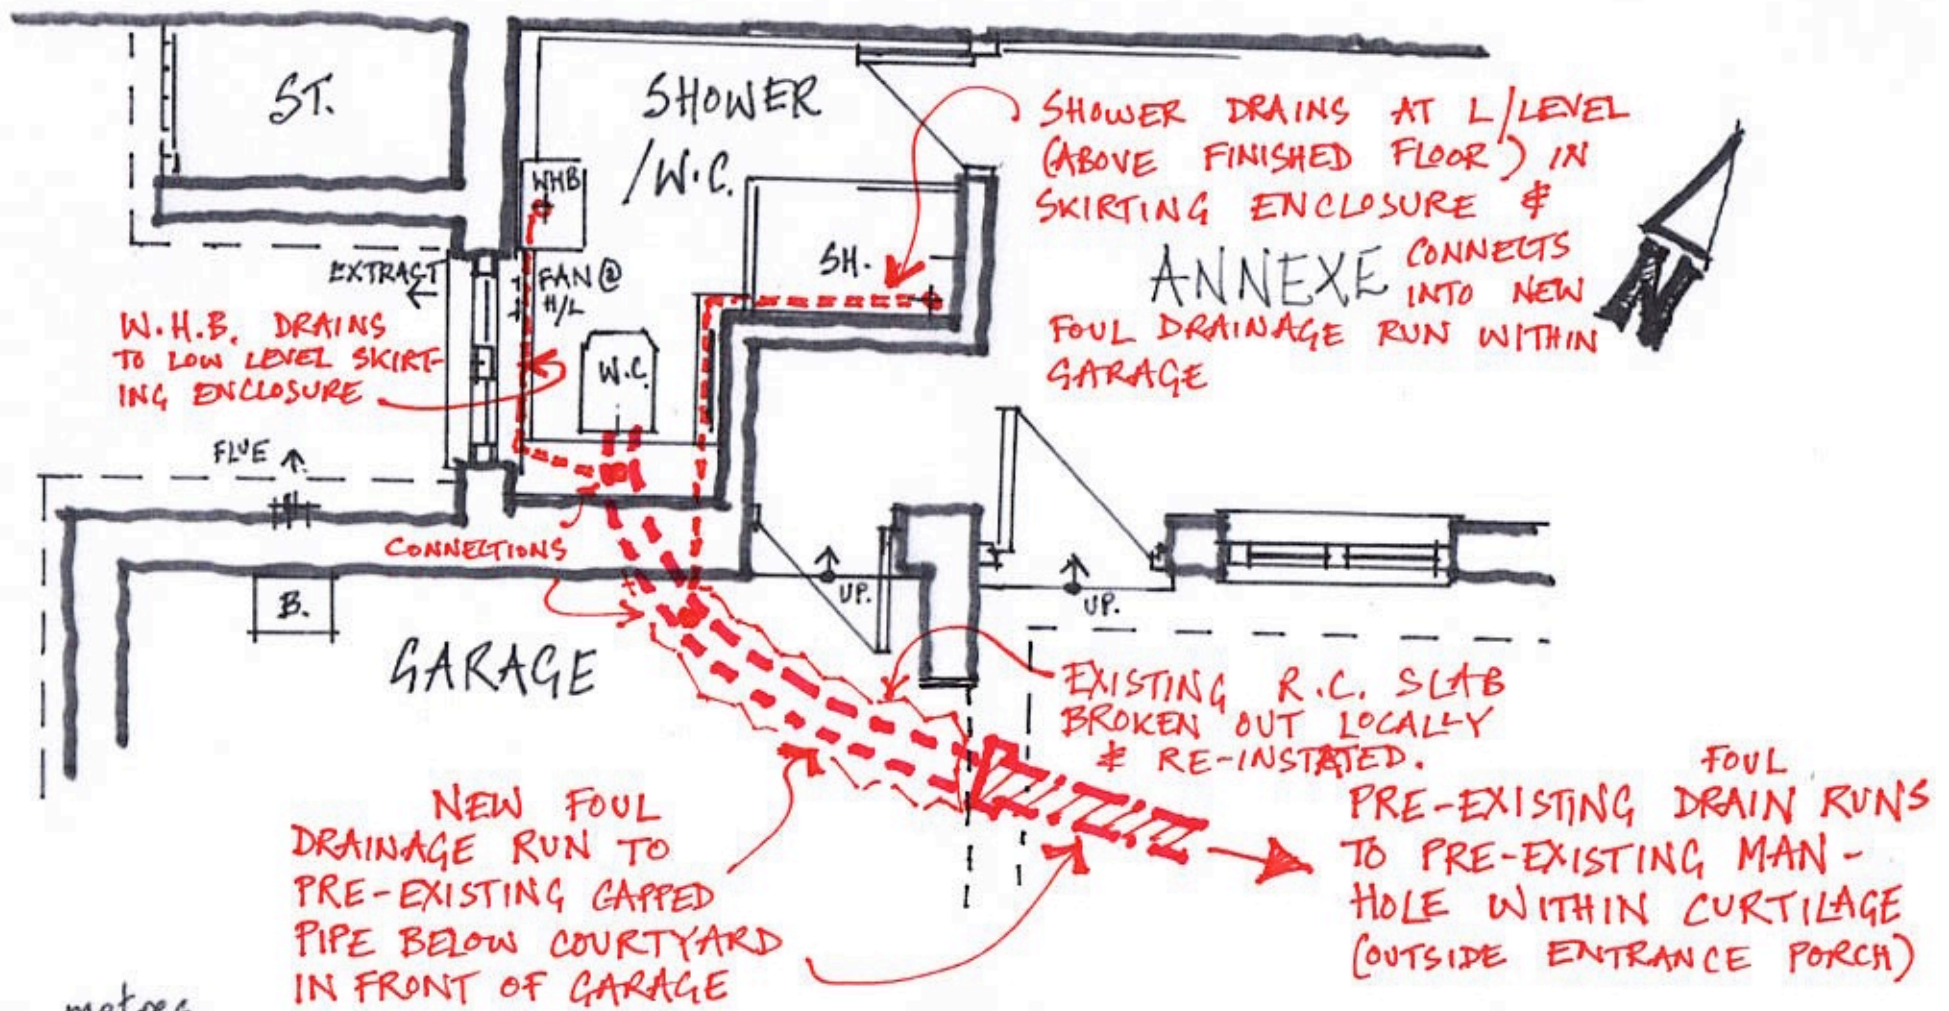 ST.
SHOWER
/W.C.
WHB
SH.
EXTRACT
FAN @
H/L
W.C.
SHOWER DRAINS AT L/LEVEL
(ABOVE FINISHED FLOOR) IN
SKIRTING ENCLOSURE &
CONNECTS
INTO NEW
FOUL DRAINAGE RUN WITHIN
GARAGE
ANNEXE
N
W.H.B. DRAINS
TO LOW LEVEL SKIRT-
ING ENCLOSURE
FLUE
CONNECTIONS
B.
GARAGE
UP.
UP.
EXISTING R.C. SLAB
BROKEN OUT LOCALLY
& RE-INSTATED.
NEW FOUL
DRAINAGE RUN TO
PRE-EXISTING CAPPED
PIPE BELOW COURTYARD
IN FRONT OF GARAGE
FOUL
PRE-EXISTING DRAIN RUNS
TO PRE-EXISTING MAN-
HOLE WITHIN CURTILAGE
(OUTSIDE ENTRANCE PORCH)
metres